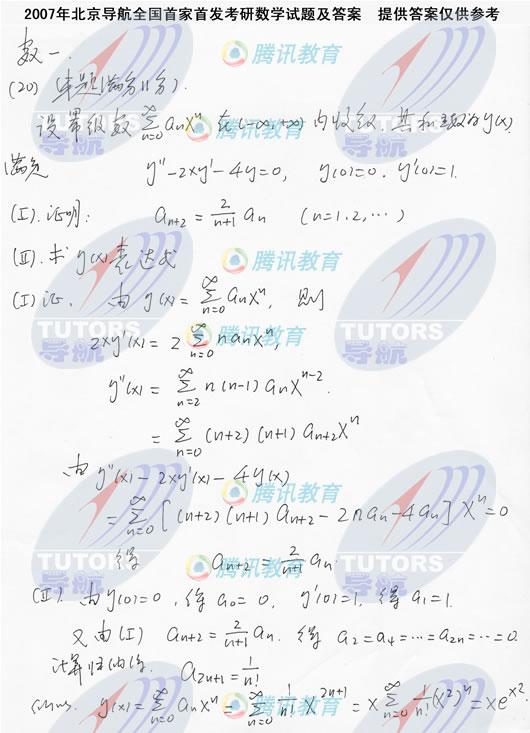 2007年北京导航全国首家首发考研数学试题及答案 提供答案仅供参考
数一.
(20) (本题满分11分).
设幂级数 ∑_{n=0}^{∞} aₙxⁿ 在(-∞,+∞)内收敛,其和函数为y(x),
满足 y''-2xy'-4y=0, y(0)=0, y'(0)=1.
(Ⅰ).证明: a_{n+2} = \frac{2}{n+1} aₙ (n=1.2,…)
(Ⅱ).求 y(x)表达式
(Ⅰ)证. 由 y(x)= ∑_{n=0}^{∞} aₙxⁿ, 则
2xy'(x) = 2 ∑_{n=0}^{∞} n aₙxⁿ,
y''(x) = ∑_{n=2}^{∞} n(n-1) aₙx^{n-2}.
= ∑_{n=0}^{∞} (n+2)(n+1) a_{n+2}xⁿ
由 y''(x)-2xy'(x)-4y(x)
= ∑_{n=0}^{∞} [(n+2)(n+1) a_{n+2} - 2n aₙ - 4aₙ] xⁿ = 0
得 a_{n+2} = \frac{2}{n+1} aₙ.
(Ⅱ). 由y(0)=0, 得 a₀=0, y'(0)=1, 得 a₁=1.
又由(Ⅰ) a_{n+2} = \frac{2}{n+1} aₙ. 得 a₂=a₄=…=a_{2n}=…=0.
计算归纳得, a_{2n+1} = \frac{1}{n!}
y(x) = ∑_{n=0}^{∞} aₙxⁿ = ∑_{n=0}^{∞} \frac{1}{n!} x^{2n+1} = x ∑_{n=0}^{∞} \frac{1}{n!} (x²)ⁿ = xe^{x²}.
腾讯教育
TUTORS
导航
腾讯教育
腾讯教育
TUTORS
导航
TUTORS
导航
腾讯教育
腾讯教育
TUTORS
导航
TUTORS
导航
腾讯教育